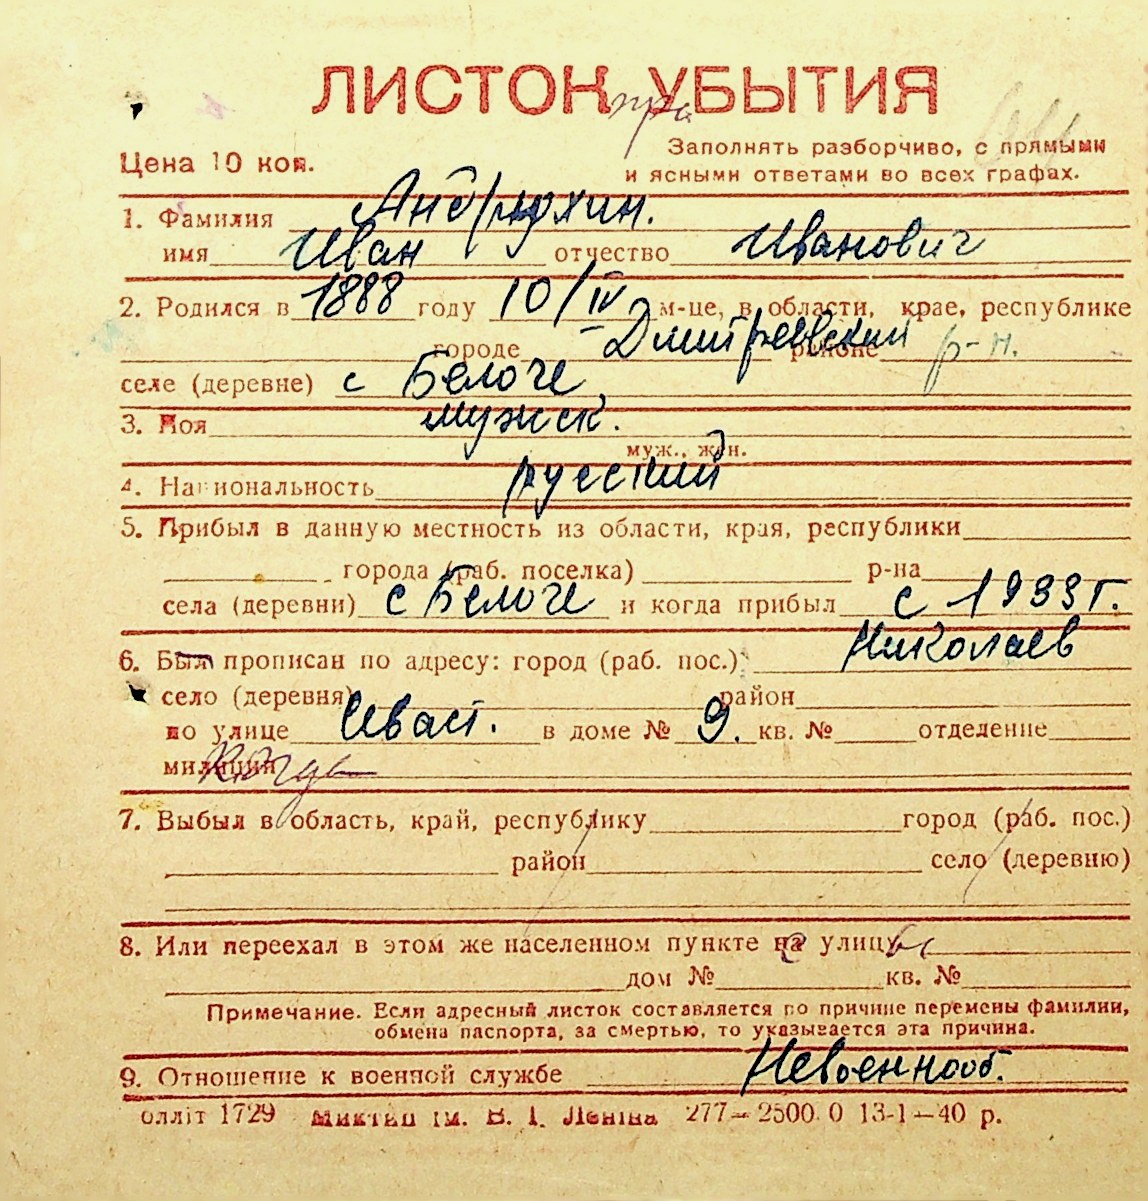 ЛИСТОК УБЫТИЯ
Цена 10 коп.
Заполнять разборчиво, с прямыми
и ясными ответами во всех графах.
1. Фамилия Андрюхин.
имя Иван отчество Иванович
2. Родился в 1888 году 10/IV м-це, в области, крае, республике
городе Дмитревский районе р-н.
селе (деревне) с Белоче
3. Пол мужск.
муж., жен.
4. Национальность русский
5. Прибыл в данную местность из области, края, республики
города (раб. поселка) р-на
села (деревни) с Белоче и когда прибыл с 1933 г.
6. Был прописан по адресу: город (раб. пос.) Николаев
село (деревня) район
по улице в доме № 9. кв. № отделение
милиции
7. Выбыл в область, край, республику город (раб. пос.)
район село (деревню)
8. Или переехал в этом же населенном пункте на улицу
дом № кв. №
Примечание. Если адресный листок составляется по причине перемены фамилии,
обмена паспорта, за смертью, то указывается эта причина.
9. Отношение к военной службе Невоеннооб.
олліт 1729 ім. В. І. Леніна 277—2500.0 13-1—40 р.